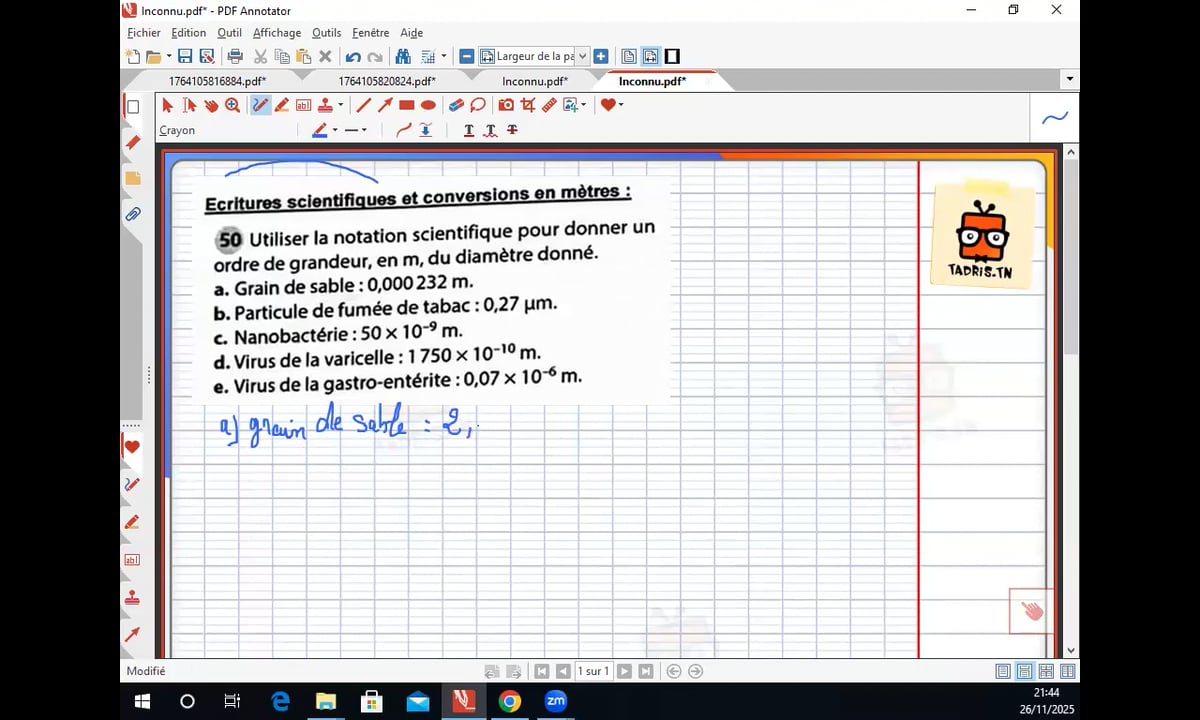 Inconnu.pdf* - PDF Annotator
Fichier Edition Outil Affichage Outils Fenêtre Aide
Largeur de la pa
1764105816884.pdf* 1764105820824.pdf* Inconnu.pdf* Inconnu.pdf*
Crayon
Ecritures scientifiques et conversions en mètres :
50 Utiliser la notation scientifique pour donner un
ordre de grandeur, en m, du diamètre donné.
a. Grain de sable : 0,000 232 m.
b. Particule de fumée de tabac : 0,27 μm.
c. Nanobactérie : 50 × 10⁻⁹ m.
d. Virus de la varicelle : 1 750 × 10⁻¹⁰ m.
e. Virus de la gastro-entérite : 0,07 × 10⁻⁶ m.
a) grain de sable : 2,
TADRIS.TN
Modifié
1 sur 1
zm
21:44
26/11/2025